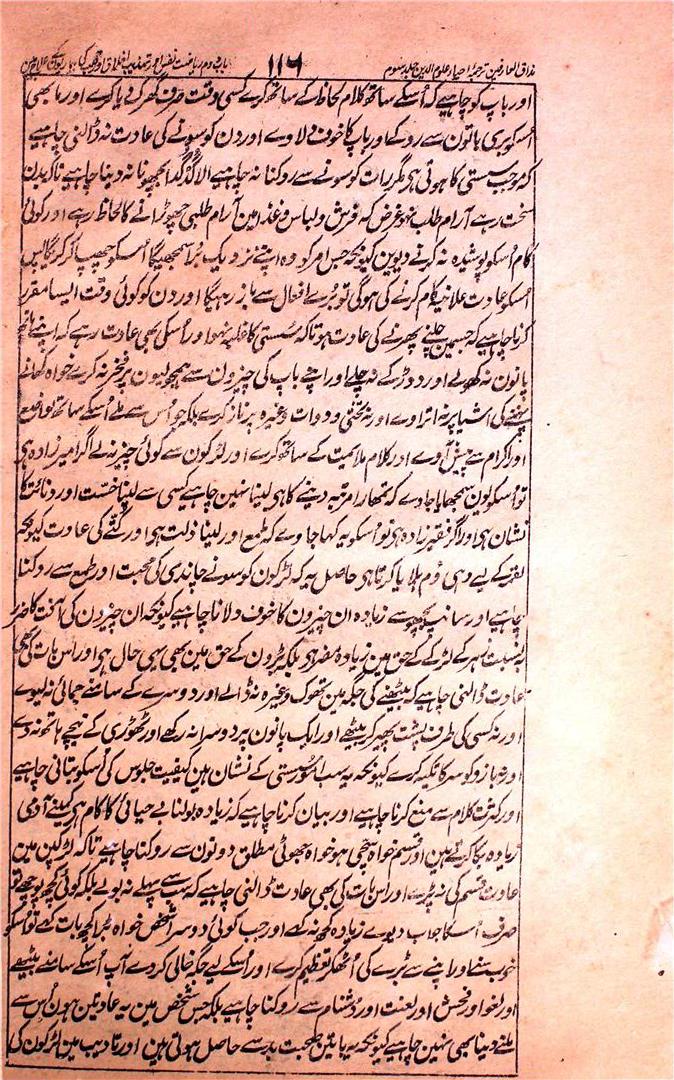 مذاق العارفین ترجمۂ احیاء علوم الدین جلد سوم ۱۱۶ باب دوم ریاضت نفس اور تہذیب اخلاق اور قلب کی بیماریوں کے علاج میں
اور باپ کو چاہیے کہ اُسکے ساتھ کلام لحاظ کے ساتھ کرے کسی وقت صرف گھرک دیا کرے اور ما بھی
اُسکو بری باتون سے روکے اور باپ کا خوف دلاوے اور دن کو سونے کی عادت نہ ڈالنی چاہیے
کہ موجب سستی کا ہوتی ہی مگر رات کو سونے سے روکنا نہ چاہیے الا گدگدا بچھونا نہ دینا چاہیے تاکہ بدن
سخت رہے آرام طلب نہو غرض کہ فرش و لباس و غذا مین آرام طلبی چھوڑانے کا لحاظ رہے اور کوئی
کام اُسکو پوشیدہ نہ کرنے دیوین کیونکہ جس امر کو وہ اپنے نزدیک برا سمجھیگا اُسکو چھپا کر کریگا پس
اُسکو عادت علانیہ کام کرنے کی ہوگی تو برے افعال سے باز رہیگا اور دن کو کوئی وقت ایسا مقرر
کرنا چاہیے کہ جسمین چلنے پھرنے کی عادت ہو تاکہ سستی کا غلبہ نہو اور اُسکی بھی عادت رہے کہ اپنے ہاتھ
پانون نہ کھولے اور دوڑ کے نہ چلے اور اپنے باپ کی چیزون سے ہمجولیون پر فخر نہ کرے خواہ کھانے
پہننے کی اشیا پر نہ اتراوے اور نہ تختی و دوات وغیرہ پر ناز کرے بلکہ جو اُس سے ملے اُسکے ساتھ تواضع
اور اکرام سے پیش آوے اور کلام ملایمت کے ساتھ کرے اور لڑکون سے کوئی چیز نہ لے اگر امیرزادہ ہی
تو اُسکو یون سمجھایا جاوے کہ تمھارا مرتبہ دینے کا ہی لینا نہین چاہیے کسی سے لینا خست اور دنائت کا
نشان ہی اور اگر فقیرزادہ ہی تو اُسکو یہ کہا جاوے کہ طمع اور لینا ذلت ہی اور کتے کی عادت کیونکہ
لقمہ کے لیے وہی دُم ہلایا کرتا ہی حاصل یہ کہ لڑکون کو سونے چاندی کی محبت اور طمع سے روکنا
چاہیے اور سانپ بچھو سے زیادہ ان چیزون کا خوف دلانا چاہیے کیونکہ ان چیزون کی آفت کا ضرر
بہ نسبت زہر کے لڑکے کے حق مین زیادہ مضر ہی بلکہ بڑون کے حق مین بھی یہی حال ہی اور اس بات کی بھی
عادت ڈالنی چاہیے کہ بیٹھنے کی جگہ مین تھوک وغیرہ نہ ڈالے اور دوسرے کے سامنے جمائی نہ لیوے
اور نہ کسی کی طرف پشت پھیر کر بیٹھے اور ایک پانون پر دوسرا نہ رکھے اور ٹھوڑی کے نیچے ہاتھ نہ دے
اور نہ بازو کو سر کا تکیہ کرے کیونکہ یہ سب امور سستی کے نشان ہین کیفیت جلوس کی اُسکو بتانی چاہیے
اور کثرت کلام سے منع کرنا چاہیے اور بیان کرنا چاہیے کہ زیادہ بولنا بے حیائی کا کام ہی کمینے آدمی
زیادہ بکا کرتے ہین اور قسم خواہ سچی ہو خواہ جھوٹی مطلق دونون سے روکنا چاہیے تاکہ لڑکپن مین
عادت قسم کی نہ پڑے اور اس بات کی بھی عادت ڈالنی چاہیے کہ سب سے پہلے نہ بولے بلکہ کوئی کچھ پوچھے تو
صرف اُسکا جواب دیوے زیادہ کچھ نہ کہے اور جب کوئی دوسرا شخص خواہ بڑا کچھ بات کہے تو اُسکو
خوب سنے اور اپنے سے بڑے کی اُٹھکر تعظیم کرے اور اُسکے لیے جگہ خالی کر دے آپ اُسکے سامنے بیٹھے
اور لغو اور فحش اور لعنت اور دشنام سے روکنا چاہیے بلکہ جس شخص مین یہ عادتین ہون اُس سے
ملنے دینا بھی نہین چاہیے کیونکہ یہ باتین صحبت بد سے حاصل ہوتی ہین اور تادیب مین لڑکون کی